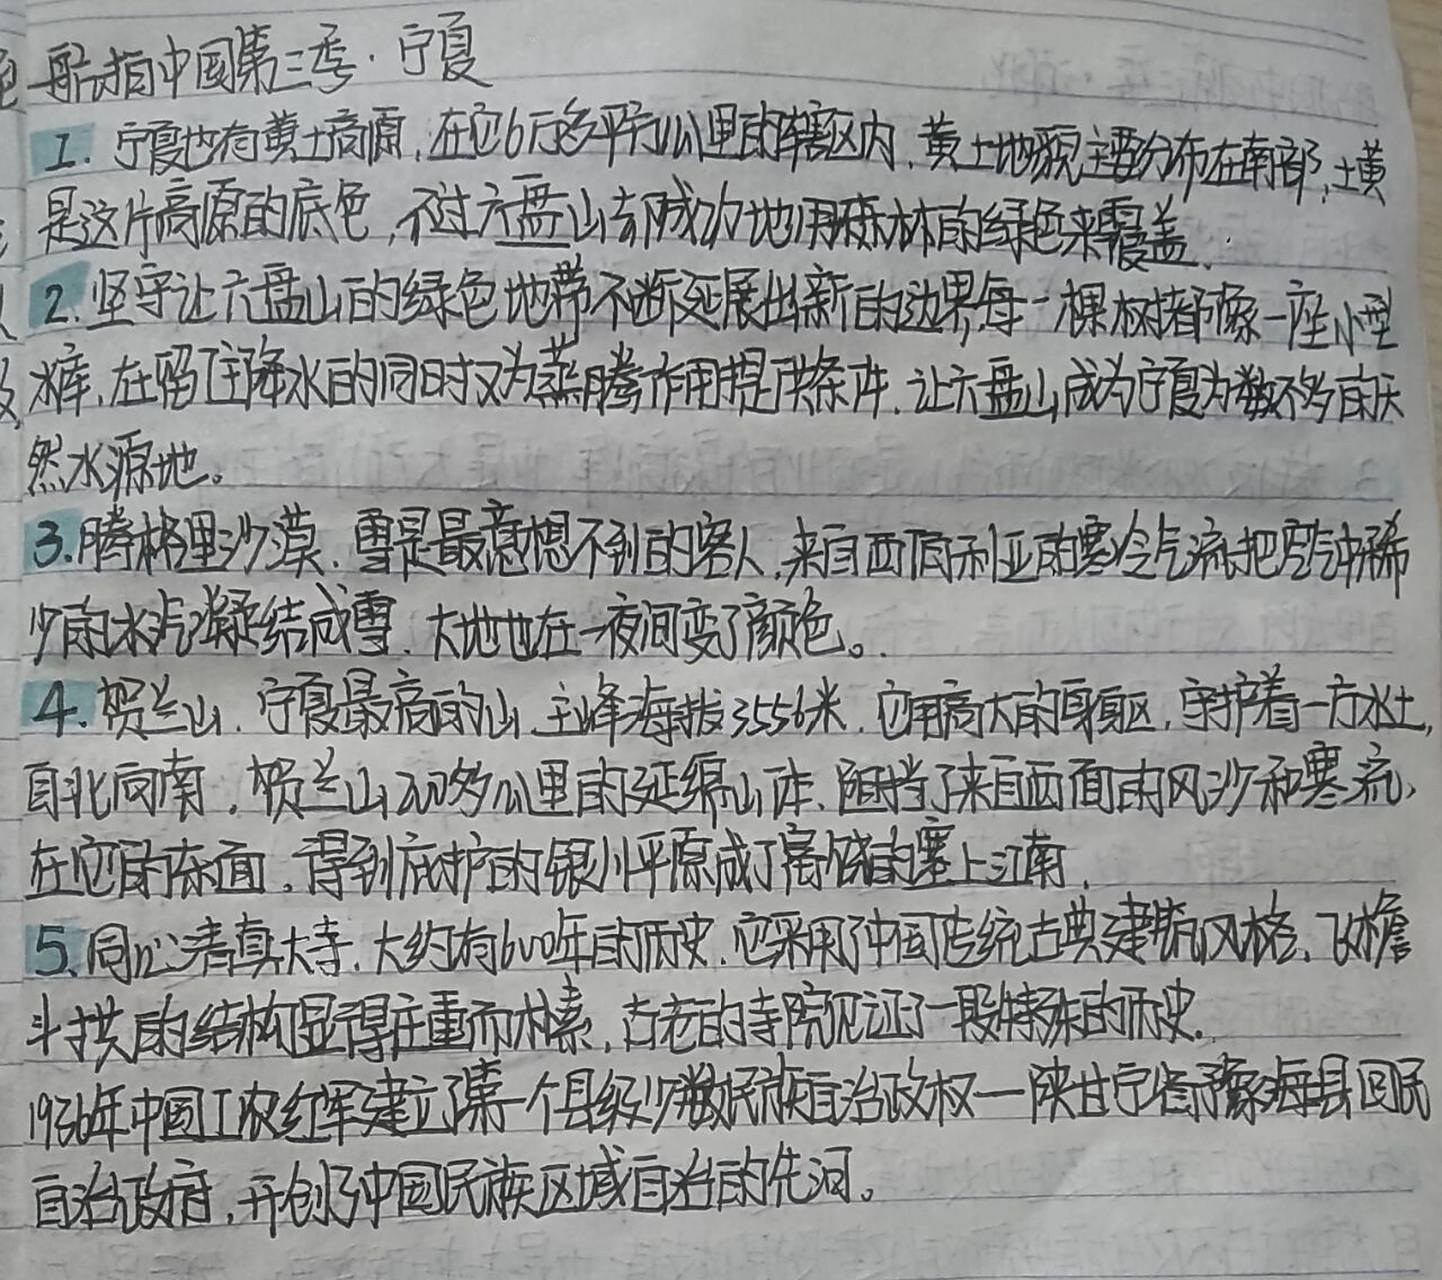 航拍中国第三季·宁夏
1. 宁夏也有黄土高原,在它6万多平方公里的辖区内,黄土地貌主要分布在南部,土黄
是这片高原的底色,不过六盘山却成功地用森林的绿色来覆盖.
2. 坚守让六盘山的绿色地带不断延展出新的边界,每一棵树都像一座小型
水库,在留住降水的同时又为蒸腾作用提供条件,让六盘山成为宁夏为数不多的天
然水源地。
3.腾格里沙漠,雪是最意想不到的客人,来自西伯利亚的寒冷气流把空气中稀
少的水汽凝结成雪,大地也在一夜间变了颜色。
4. 贺兰山,宁夏最高的山,主峰海拔3556米,它用高大的身躯,守护着一方水土,
自北向南,贺兰山200多公里的延绵山体,阻挡了来自西面的风沙和寒流,
在它的东面,得到庇护的银川平原成了富饶的塞上江南.
5、同心清真大寺,大约有600年的历史,它采用了中国传统古典建筑风格,飞檐
斗拱的结构显得庄重而朴素,古老的寺院见证了一段特殊的历史.
1936年中国工农红军建立了第一个县级少数民族自治政权—陕甘宁省豫海县回民
自治政府,开创了中国民族区域自治的先河。